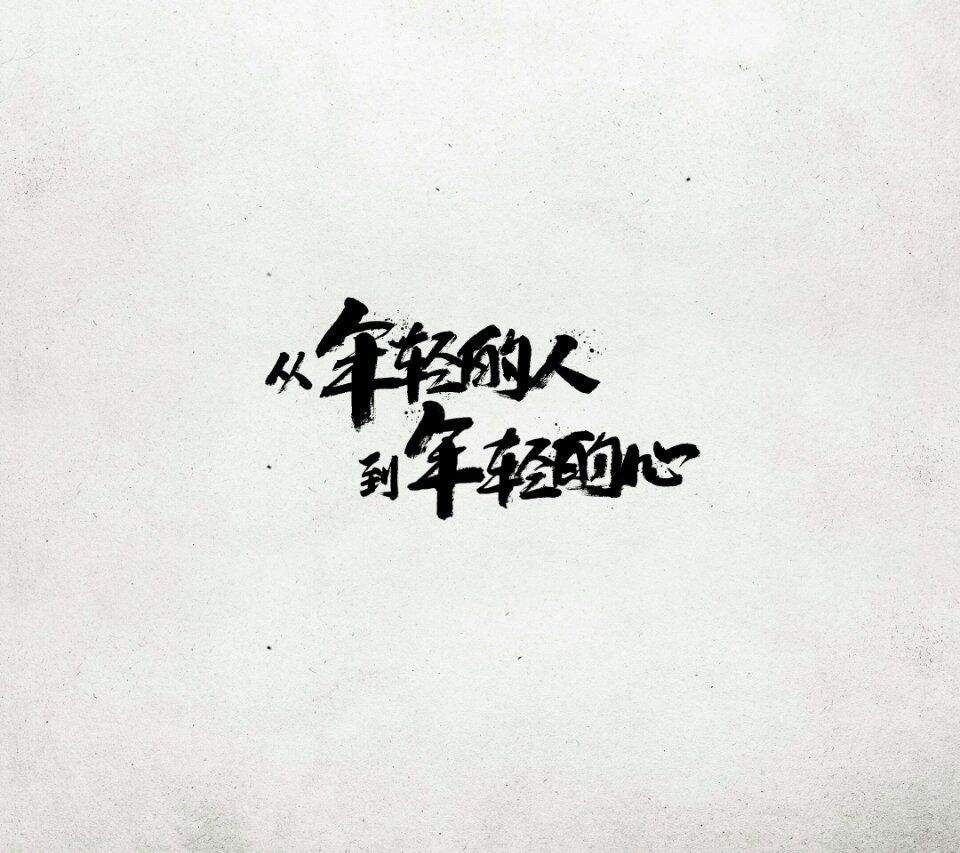 从年轻的人
到年轻的心